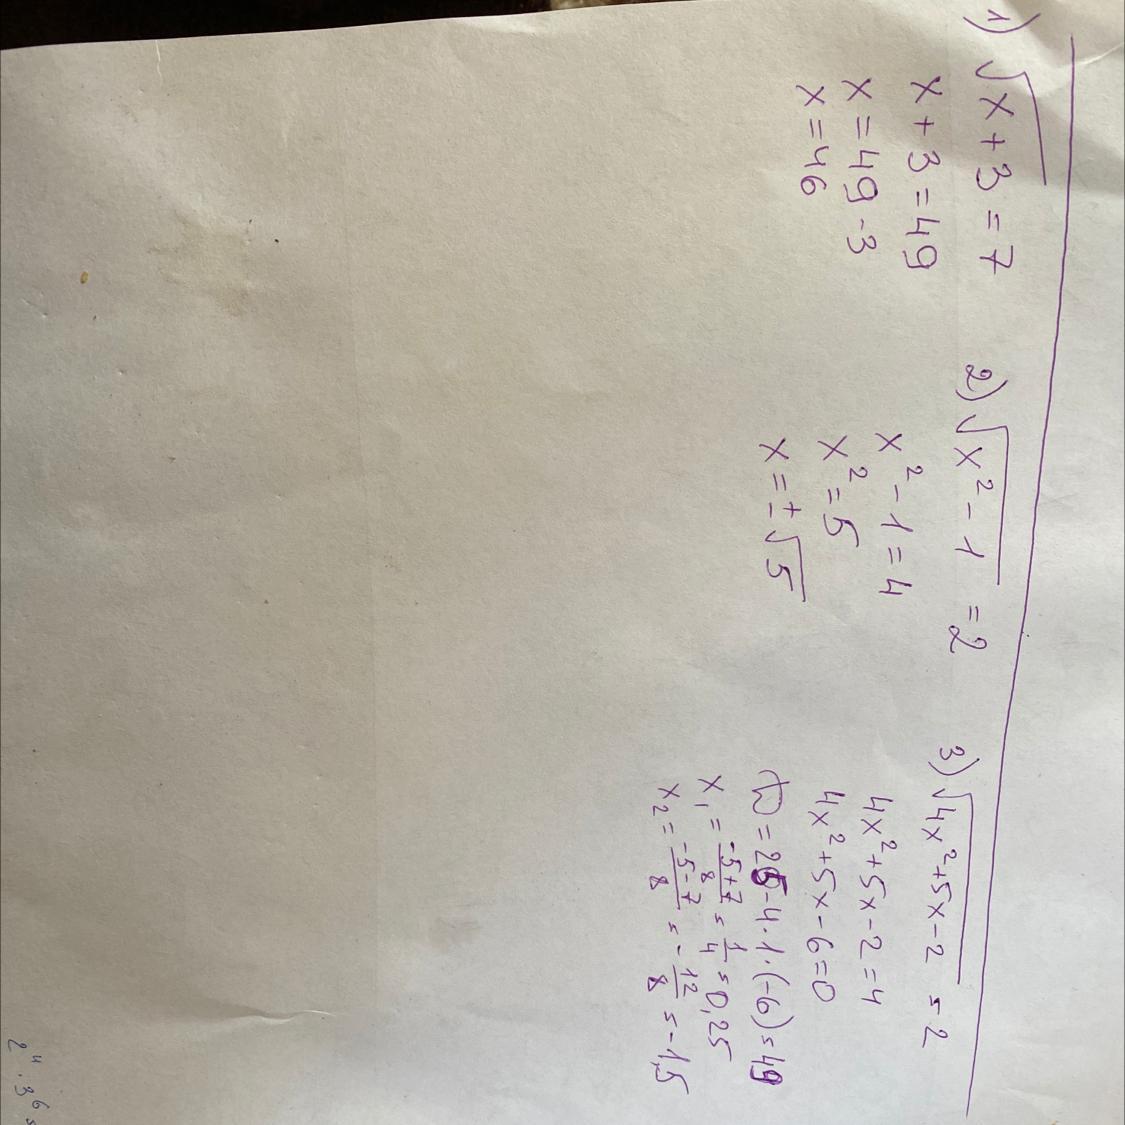 1) √x+3 = 7
x+3 = 49
x = 49-3
x = 46
2) √x²-1 = 2
x²-1 = 4
x² = 5
x = ±√5
3) √4x²+5x-2 = 2
4x²+5x-2 = 4
4x²+5x-6=0
D = 25-4·1·(-6) = 49
x₁ = -5+7/8 = 1/4 = 0,25
x₂ = -5-7/8 = -12/8 = -1,5
2⁴·3⁶ =